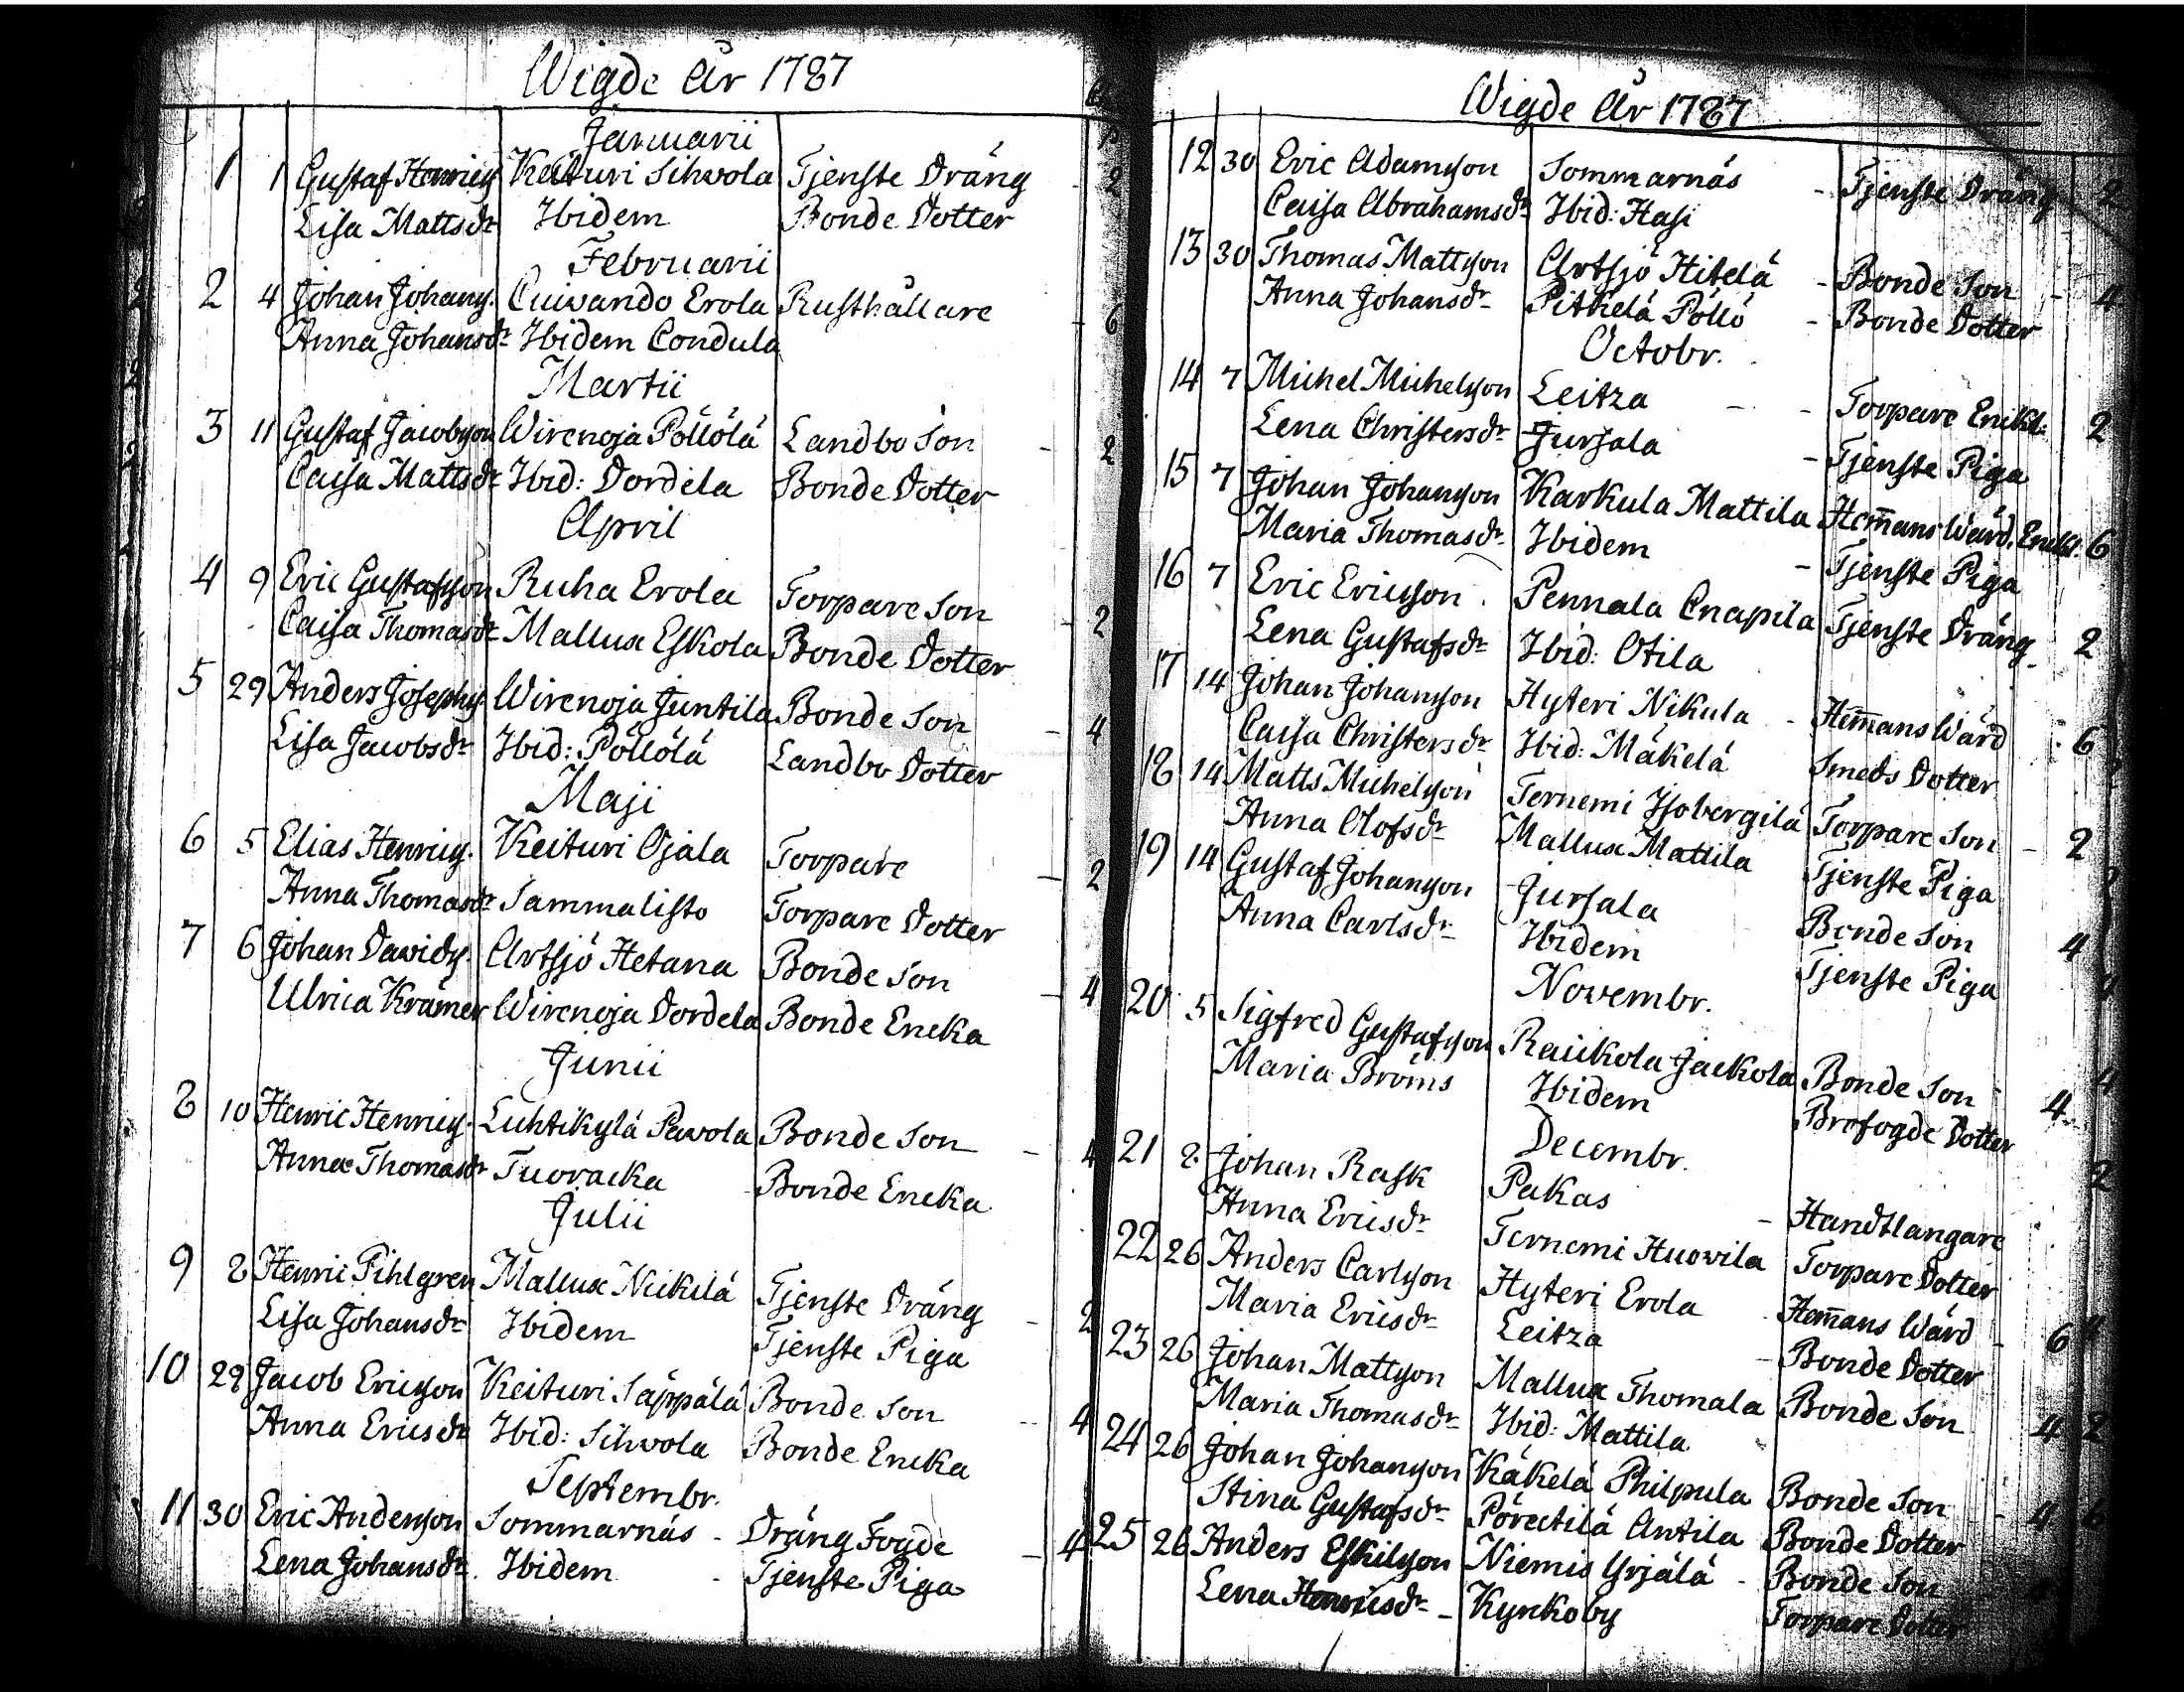 Wigde År 1787
Januarii
1 1 Gustaf Henrics. Keituri Sihvola Tjenste Dräng - 2
Lisa Mattsdr Ibidem Bonde Dotter
Februarii
2 4 Johan Johans. Cuivando Erola Rusthållare - 6
Anna Johansdr Ibidem Condula
Martii
3 11 Gustaf Jacobson Wirenoja Pöllölä Landbo Son - 2
Caisa Mattsdr Ibid: Dordela Bonde Dotter
April
4 9 Eric Gustafsson Ruha Erola Torpare Son - 2
Caisa Thomasdr Mallux Eskola Bonde Dotter
5 29 Anders Josephs. Wirenoja Juntila Bonde Son - 4
Lisa Jacobsdr Ibid: Pöllölä Landbo Dotter
Maji
6 5 Elias Henrics. Keituri Ojala Torpare - 2
Anna Thomasdr Sammalisto Torpare Dotter
7 6 Johan Davids. Artsjö Hetana Bonde Son - 4
Ulrica Krämer Wirenoja Dordela Bonde Encka
Junii
8 10 Henric Henrics. Luhtikylä Pavola Bonde Son - 4
Anna Thomasdr Tuoracka Bonde Encka
Julii
9 8 Henric Pihlgren Mallux Nickilä Tjenste Dräng - 2
Lisa Johansdr Ibidem Tjenste Piga
10 28 Jacob Ericson Keituri Säppälä Bonde Son - 4
Anna Ericsdr Ibid: Sihvola Bonde Encka
Septembr.
11 30 Eric Anderson Sommarnäs - Dräng Fogde - 4
Lena Johansdr. Ibidem - Tjenste Piga
Wigde År 1787
12 30 Eric Adamson Sommarnäs - Tjenste Dräng 2
Caisa Abrahamsdr Ibid: Hasi
13 30 Thomas Mattson Artsjö Hitelä - Bonde Son - 4
Anna Johansdr Pitkelä Pöllö - Bonde Dotter
Octobr.
14 7 Michel Michelson Leitza - - Torpare Enckl: 2
Lena Christersdr Jursala - Tjenste Piga
15 7 Johan Johanson Karkula Mattila Hem̄ans Wärd. Enckl. 6
Maria Thomasdr Ibidem - Tjenste Piga
16 7 Eric Ericson. Pennala Cnapila Tjenste Dräng - 2
Lena Gustafsdr Ibid: Otila
17 14 Johan Johanson Hyteri Nikula - Hem̄ans Wärd - 6
Caisa Christersdr Ibid: Mäkelä Smeds Dotter
18 14 Matts Michelson Ternemi Isobergilä Torpare Son - 2
Anna Olofsdr Mallux Mattila Tjenste Piga
19 14 Gustaf Johanson Jursala Bonde Son 4
Anna Carlsdr Ibidem Tjenste Piga
Novembr.
20 5 Sigfred Gustafsson Raickola Jackola Bonde Son 4
Maria Broms Ibidem Brofogde Dotter
Decembr.
21 2 Johan Rask Pakas - Handtlangare
Anna Ericsdr Ternemi Huovila Torpare Dotter
22 26 Anders Carlson Hyteri Erola Hem̄ans Wärd - 6
Maria Ericsdr Leitza - Bonde Dotter
23 26 Johan Mattson Mallux Thomala Bonde Son 4
Maria Thomasdr Ibid: Mattila
24 26 Johan Johanson Käkelä Philpula Bonde Son - 4
Stina Gustafsdr Pörcetilä Antila Bonde Dotter
25 26 Anders Eskilson Niemis Yrjälä - Bonde Son
Lena Henricsdr - Kyrkoby Torpare Dotter